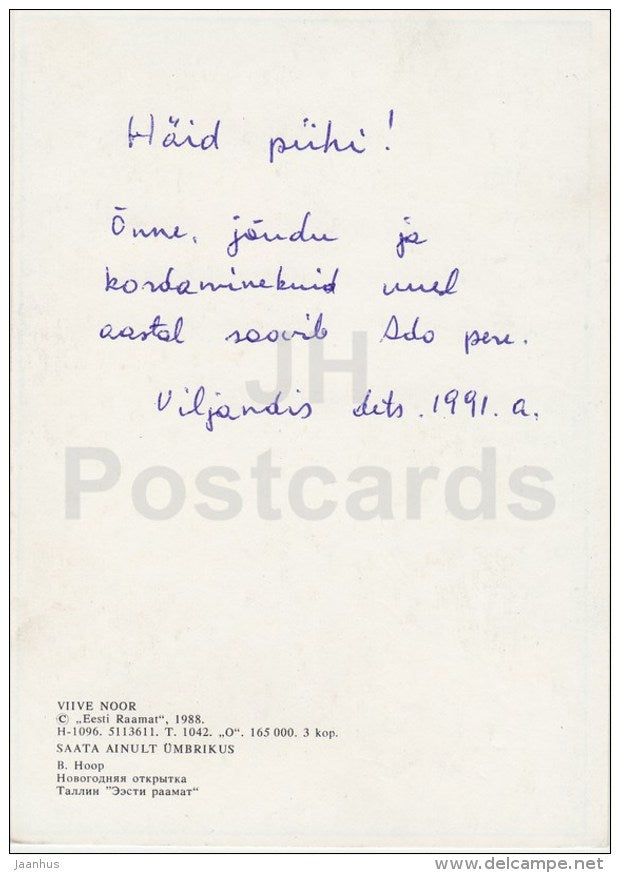 Häid pühi!
Õnne, jõudu ja
kordaminekuid uuel
aastal soovib Ado pere.
JH
Viljandis dets. 1991. a.
Postcards
VIIVE NOOR
© „Eesti Raamat“, 1988.
Н-1096. 5113611. Т. 1042. „О“. 165 000. 3 kop.
SAATA AINULT ÜMBRIKUS
В. Ноор
Новогодняя открытка
Таллин "Ээсти раамат"
jaanhus
www.delcampe.net